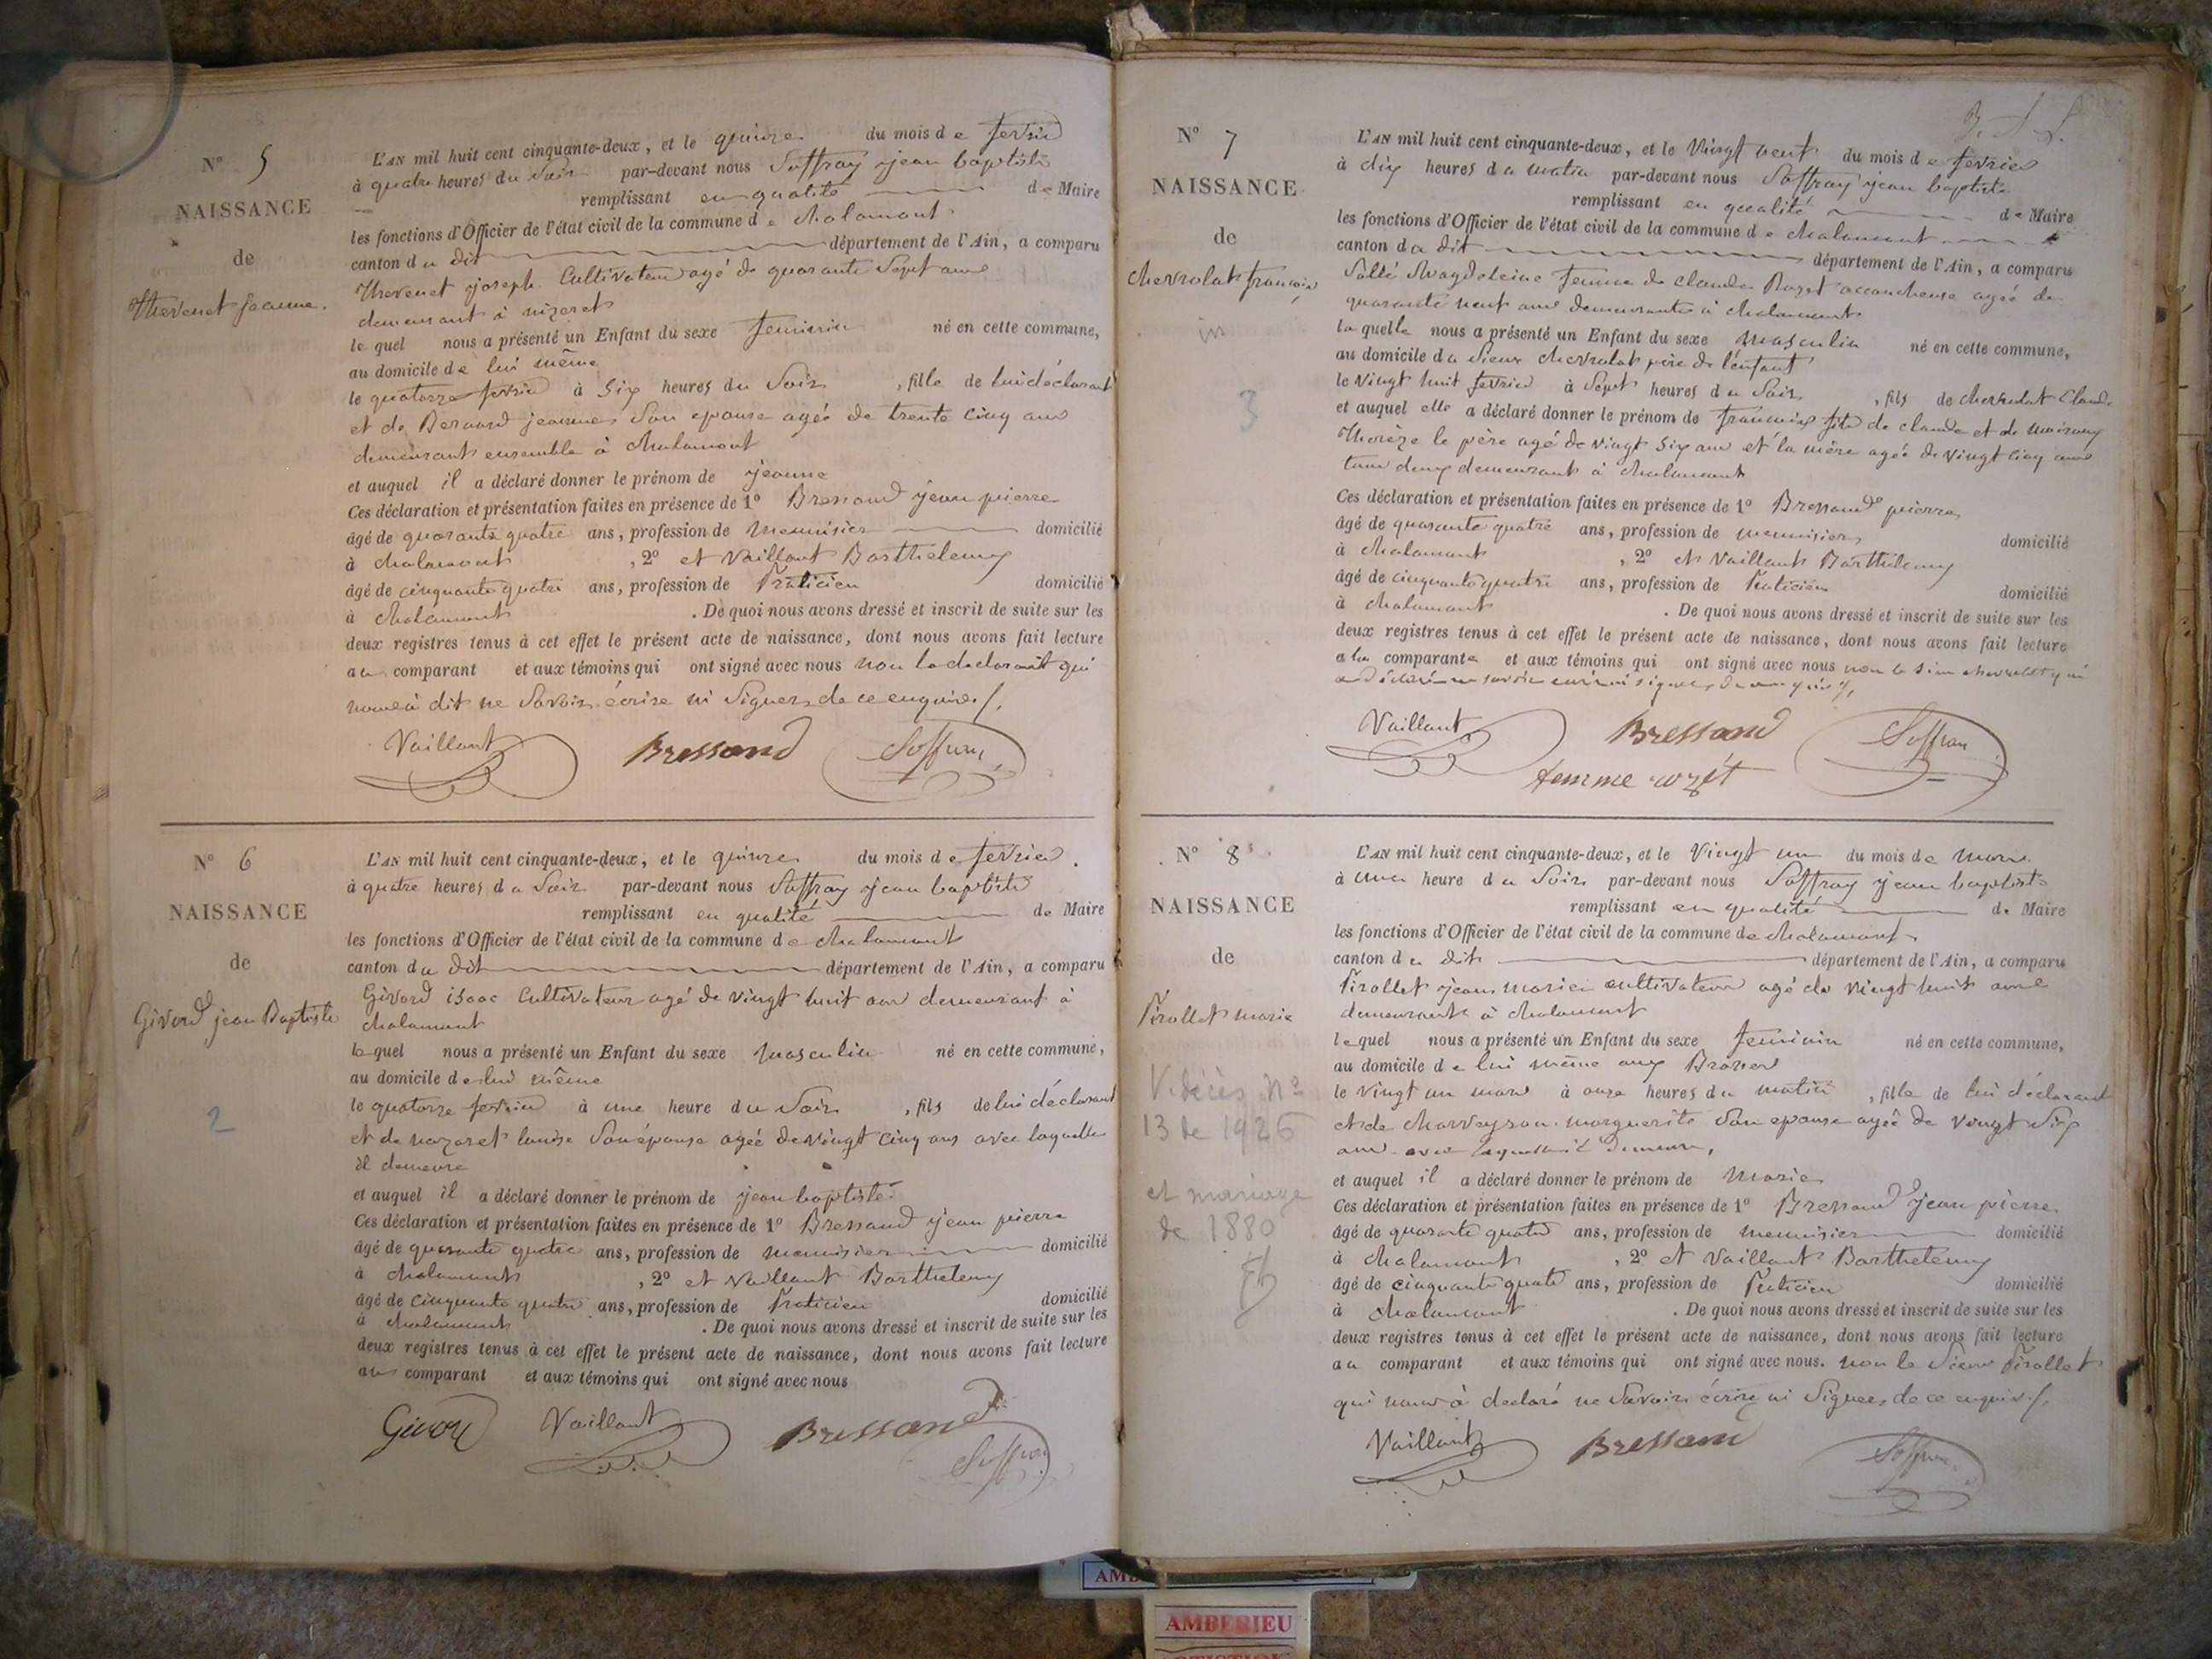 N° 5
NAISSANCE
de
Thevenet jeanne.
L'AN mil huit cent cinquante-deux, et le quinze du mois de fevrier
à quatre heures du Soir par-devant nous Soffray jean baptiste
remplissant en qualité de Maire
les fonctions d'Officier de l'état civil de la commune de chalamont
canton du dit département de l'Ain, a comparu
Thevenet joseph Cultivateur agé de quarante Sept ans
demeurant à
le quel nous a présenté un Enfant du sexe feminin né en cette commune,
au domicile de lui même
le quatorze fevrier à Six heures du Soir, fille de lui déclarant
et de Bernard jeanne Son epouse agée de trente cinq ans
demeurant ensemble à chalamont
et auquel il a déclaré donner le prénom de jeanne
Ces déclaration et présentation faites en présence de 1° Bressand jean pierre
âgé de quarante quatre ans, profession de menuisier domicilié
à chalamont, 2° et Vaillant Barthelemy
âgé de cinquante quatre ans, profession de Praticien domicilié
à chalamont. De quoi nous avons dressé et inscrit de suite sur les
deux registres tenus à cet effet le présent acte de naissance, dont nous avons fait lecture
au comparant et aux témoins qui ont signé avec nous non le declarant qui
nous à dit ne Savoir écrire ni Signer de ce enquis /.
Vaillant Bressand Soffray
N° 6
NAISSANCE
de
Givord jean Baptiste
2
L'AN mil huit cent cinquante-deux, et le quinze du mois de fevrier.
à quatre heures du Soir par-devant nous Soffray jean baptiste
remplissant en qualité de Maire
les fonctions d'Officier de l'état civil de la commune de chalamont
canton du dit département de l'Ain, a comparu
Givord isaac Cultivateur agé de vingt huit ans demeurant à
chalamont
le quel nous a présenté un Enfant du sexe masculin né en cette commune,
au domicile de lui même
le quatorze fevrier à une heure du Soir, fils de lui déclarant
et de nazaret louise Son épouse agée de vingt cinq ans avec laquelle
il demeure
et auquel il a déclaré donner le prénom de jean baptiste
Ces déclaration et présentation faites en présence de 1° Bressand jean pierre
âgé de quarante quatre ans, profession de menuisier domicilié
à chalamont, 2° et Vaillant Barthelemy
âgé de cinquante quatre ans, profession de Praticien domicilié
à chalamont. De quoi nous avons dressé et inscrit de suite sur les
deux registres tenus à cet effet le présent acte de naissance, dont nous avons fait lecture
au comparant et aux témoins qui ont signé avec nous
Givord Vaillant Bressand Soffray
N° 7
NAISSANCE
de
chevrolat françois
3
L'AN mil huit cent cinquante-deux, et le Vingt neuf du mois de fevrier
à dix heures du matin par-devant nous Soffray jean baptiste
remplissant en qualité de Maire
les fonctions d'Officier de l'état civil de la commune de chalamont
canton du dit département de l'Ain, a comparu
Magdeleine femme de Claude accoucheuse agée de
quarante neuf ans demeurante à chalamont
la quelle nous a présenté un Enfant du sexe masculin né en cette commune,
au domicile du Sieur chevrolat père de l'enfant
le Vingt huit fevrier à Sept heures du Soir, fils de chevrolat Claude
et auquel elle a déclaré donner le prénom de françois fils de claude et de
Thereze le père agé de vingt Six ans et la mère agée de vingt cinq ans
tous deux demeurant à chalamont
Ces déclaration et présentation faites en présence de 1° Bressand pierre
âgé de quarante quatre ans, profession de menuisier domicilié
à chalamont, 2° et Vaillant Barthelemy
âgé de cinquante quatre ans, profession de Praticien domicilié
à chalamont. De quoi nous avons dressé et inscrit de suite sur les
deux registres tenus à cet effet le présent acte de naissance, dont nous avons fait lecture
a la comparante et aux témoins qui ont signé avec nous non le Sieur chevrolat qui
a déclaré ne savoir écrire ni signer de ce enquis /.
Vaillant Bressand Soffray
femme
N° 8
NAISSANCE
de
Pirollet marie
V. décès N°
13 de 1926
et mariage
de 1880
L'AN mil huit cent cinquante-deux, et le Vingt un du mois de mars
à une heure du Soir par-devant nous Soffray jean baptiste
remplissant en qualité de Maire
les fonctions d'Officier de l'état civil de la commune de chalamont
canton du dit département de l'Ain, a comparu
Pirollet jean marie cultivateur agé de vingt huit ans
demeurant à chalamont
le quel nous a présenté un Enfant du sexe feminin né en cette commune,
au domicile de lui même aux
le vingt un mars à onze heures du matin, fille de lui déclarant
et de Charveyron marguerite Son epouse agée de vingt Six
ans avec laquelle il demeure,
et auquel il a déclaré donner le prénom de Marie
Ces déclaration et présentation faites en présence de 1° Bressand jean pierre
âgé de quarante quatre ans, profession de menuisier domicilié
à chalamont, 2° et Vaillant Barthelemy
âgé de cinquante quatre ans, profession de Praticien domicilié
à chalamont. De quoi nous avons dressé et inscrit de suite sur les
deux registres tenus à cet effet le présent acte de naissance, dont nous avons fait lecture
au comparant et aux témoins qui ont signé avec nous. non le Sieur Pirollet
qui nous à declaré ne Savoir écrire ni Signer de ce enquis /.
Vaillant Bressand Soffray
AMBERIEU